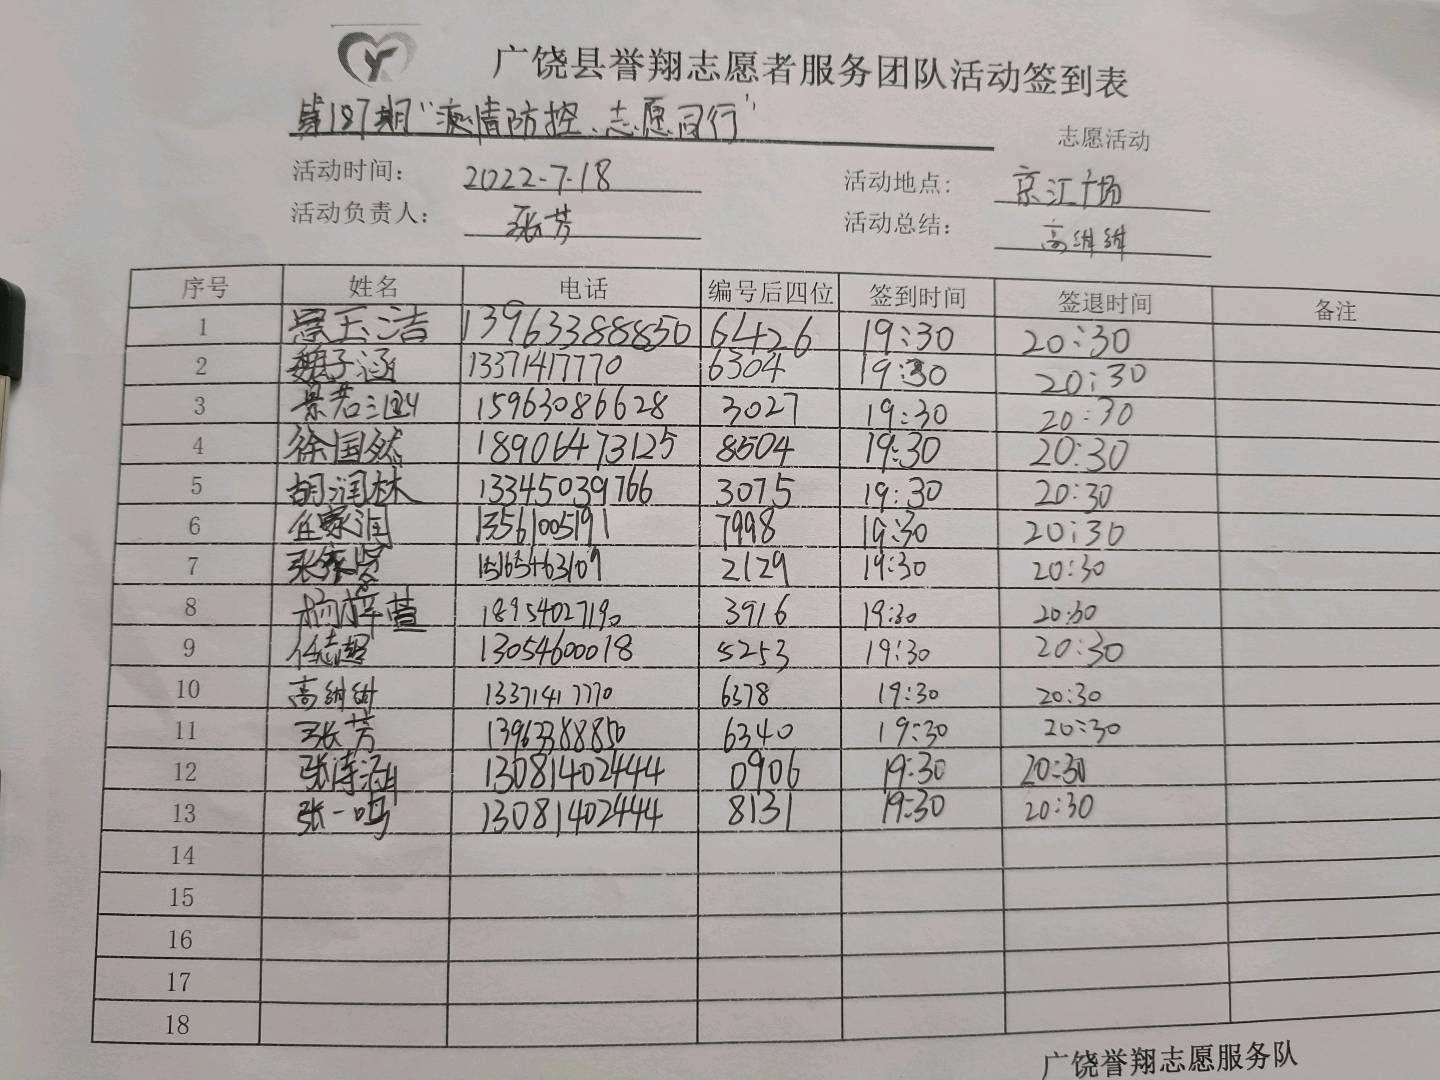 广饶县誉翔志愿者服务团队活动签到表
第187期“疫情防控、志愿同行” 志愿活动
活动时间： 2022-7-18 活动地点： 京江广场
活动负责人： 张芳 活动总结： 高绀绀
序号 姓名 电话 编号后四位 签到时间 签退时间 备注
1 玉洁 13963388850 6426 19:30 20:30
2 魏子涵 13371417770 6304 19:30 20:30
3 景若 15963086628 3027 19:30 20:30
4 徐国然 18906473125 8504 19:30 20:30
5 胡润林 13345039766 3075 19:30 20:30
6 任家润 13561005191 7998 19:30 20:30
7 张 15165463109 2129 19:30 20:30
8 杨梓萱 18954027190 3916 19:30 20:30
9 任志超 13054600018 5253 19:30 20:30
10 高绀绀 13371417770 6378 19:30 20:30
11 张芳 13963388850 6340 19:30 20:30
12 张涛涵 13081402444 0906 19:30 20:30
13 张一鸣 13081402444 8131 19:30 20:30
14
15
16
17
18
广饶誉翔志愿服务队